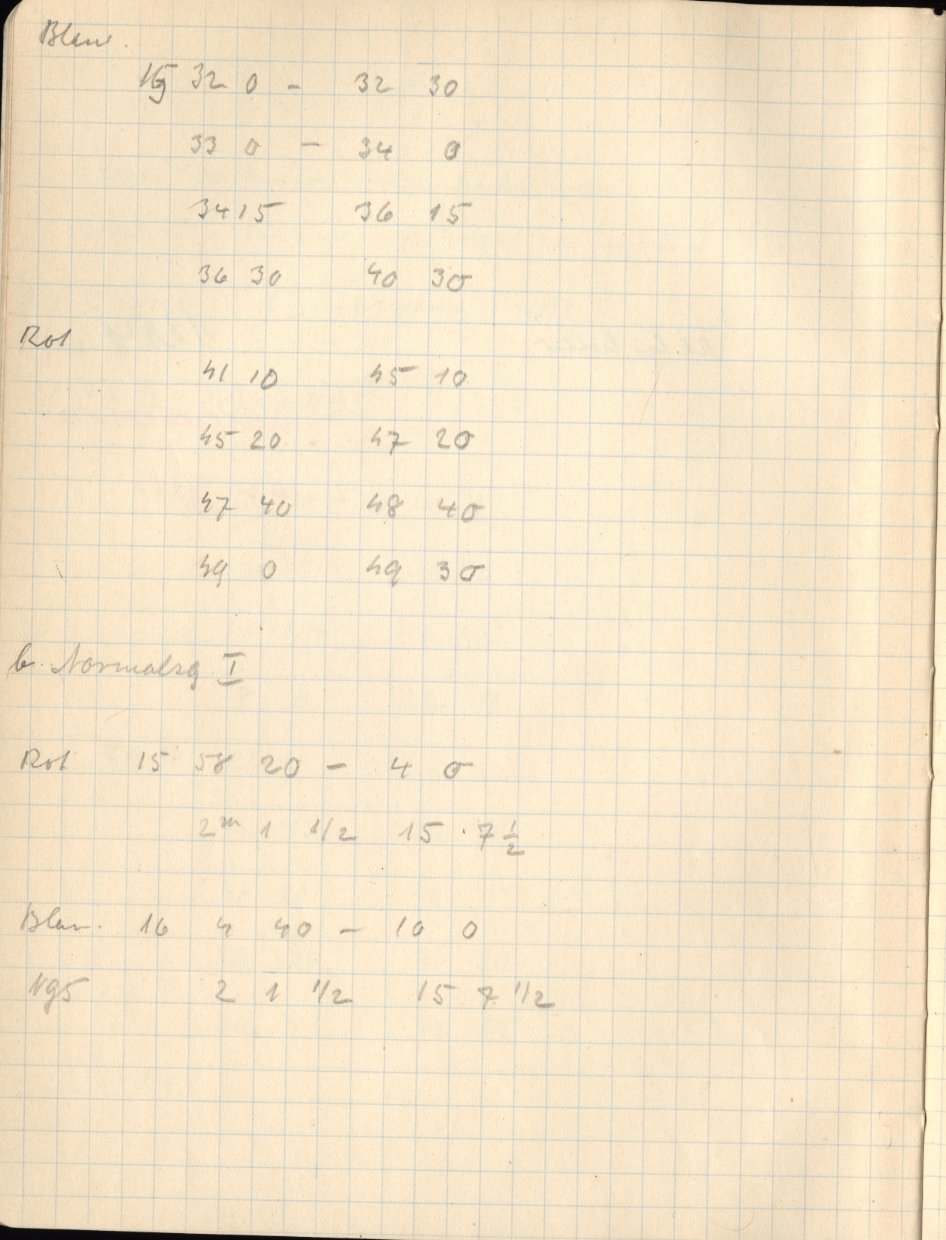 Blau.
15 32 0 - 32 30
33 0 - 34 0
34 15 36 15
36 30 40 30
Rot
41 10 45 10
45 20 47 20
47 40 48 40
49 0 49 30
b. Normalsq I
Rot 15 58 20 - 4 0
2m 1 1/2 15 7 1/2
Blau. 16 4 40 - 10 0
2 1 1/2 15 7 1/2